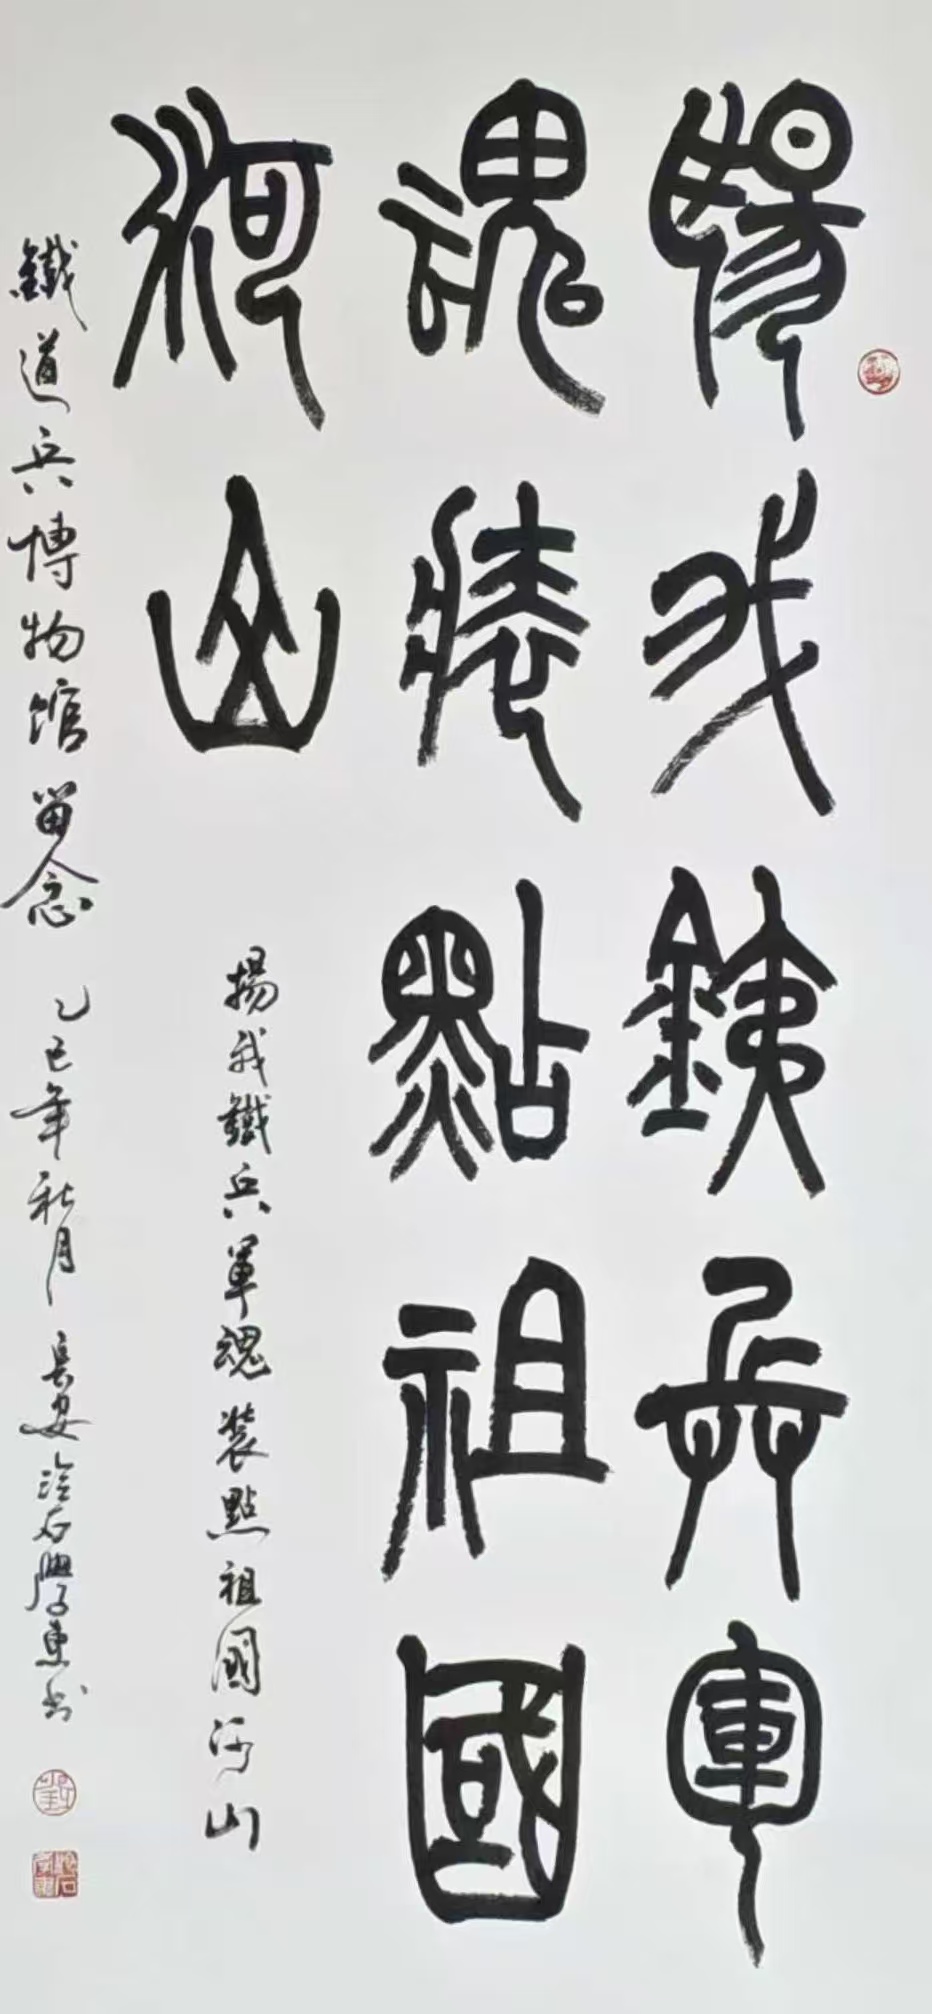 揚我鐵兵軍
魂裝點祖國
河山
揚我鐵兵軍魂裝點祖國河山
鐵道兵博物馆留念 乙巳年秋月 長安冷石學東书